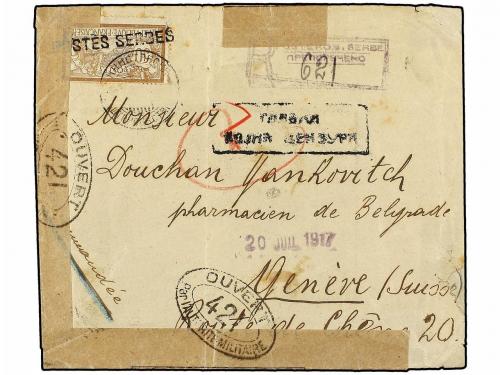 STES SERBES
SERBE
ПРЕПОРУЧЕНО
621
Monsieur
ГЛАВНА
ВОЈНА ЦЕНЗУРА
OUVERT
421
Douchan Yankovitch
pharmacien de Belgrade
20 JUIL 1917
Genève (Suisse)
OUVERT
421
Par l'AUTORITÉ MILITAIRE
de Chêne 20.